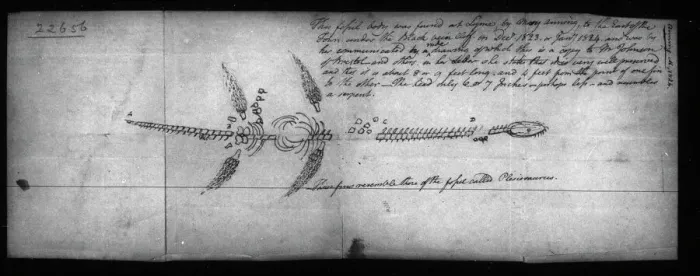 22656
This fossil body was found at Lyme, by Mary Anning, to the East of the
Town under the Black Ven Cliff in Decr. 1823, or Jany. 1824 and was by
her communicated by a drawing made of which this is a copy to Mr. Johnson
of Bristol and others, in her letter she states this was very well preserved
and that it is about 8 or 9 feet long, and 4 feet from the point of one fin
to the other. The head only 6 or 7 Inches perhaps less and resembles
a serpent.
These fins resemble those of the fossil called Plesiosaurus.